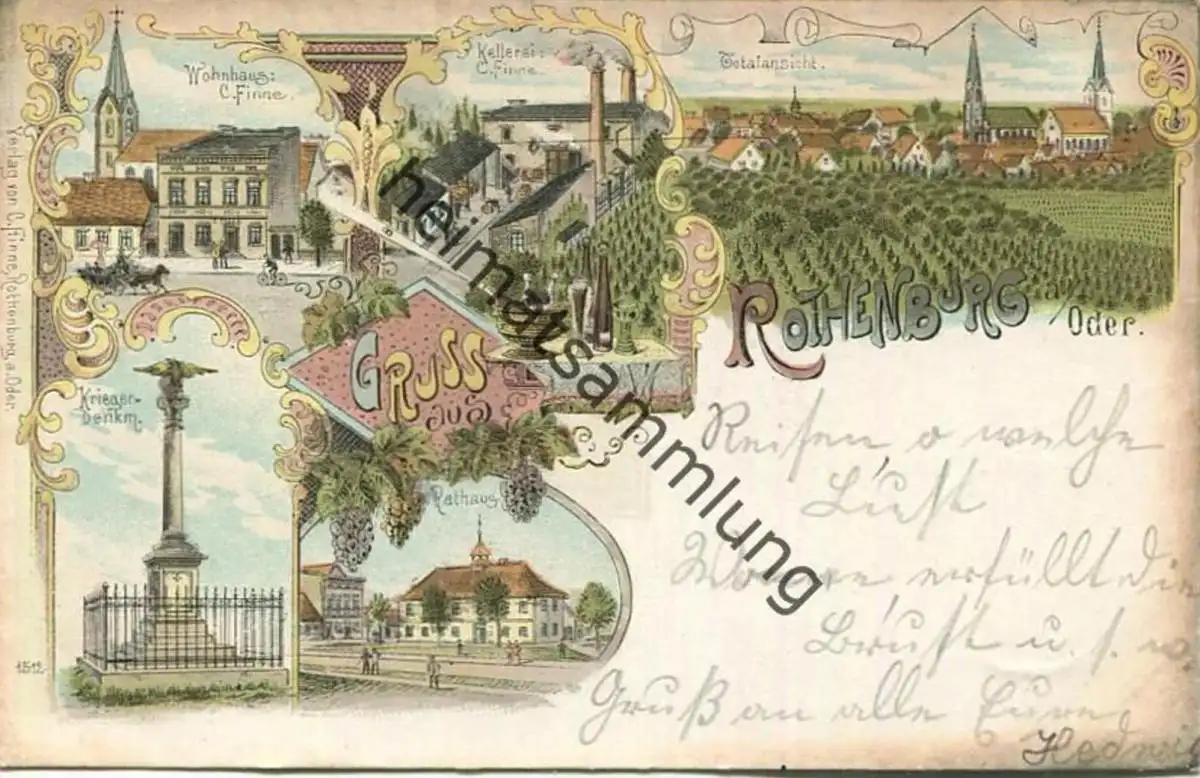 Wohnhaus:
C. Finne.
Kellerei:
C. Finne.
Totalansicht.
Verlag von C. Finne, Rothenburg a. Oder.
GRUSS
aus
ROTHENBURG
/Oder.
Krieger-
Denkm.
Rathaus
1512
Reisen o welche
Lust
Wonne erfüllt die
Brust u. s. w.
Gruß an alle Eure
Hedwig
heimatsammlung